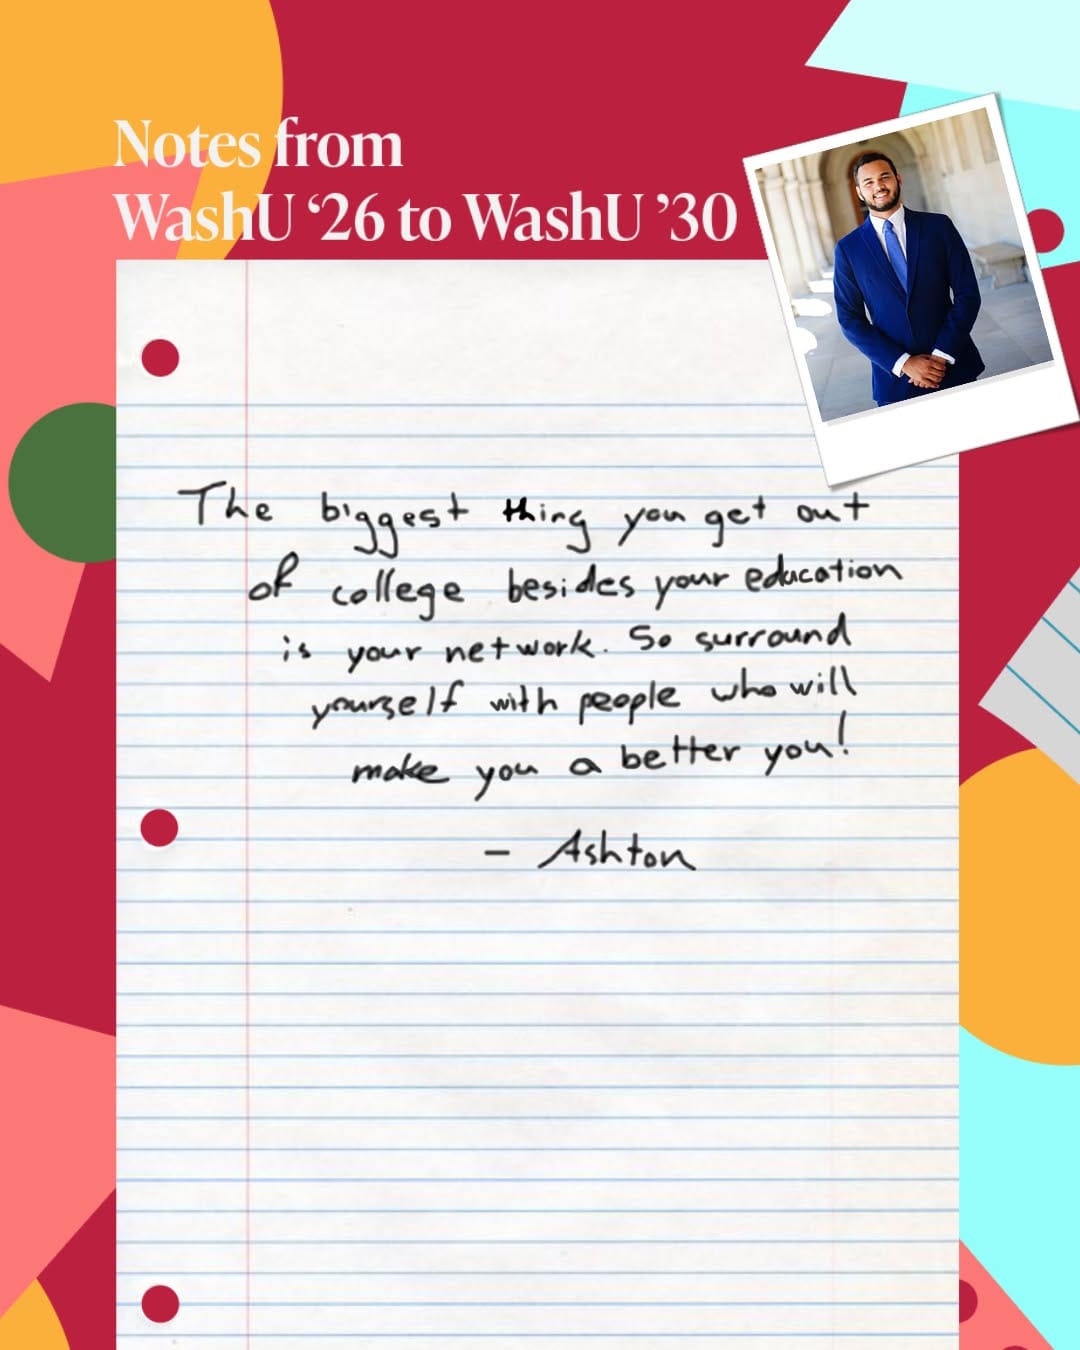 Notes from
WashU ‘26 to WashU ’30
The biggest thing you get out
of college besides your education
is your network. So surround
yourself with people who will
make you a better you!
- Ashton